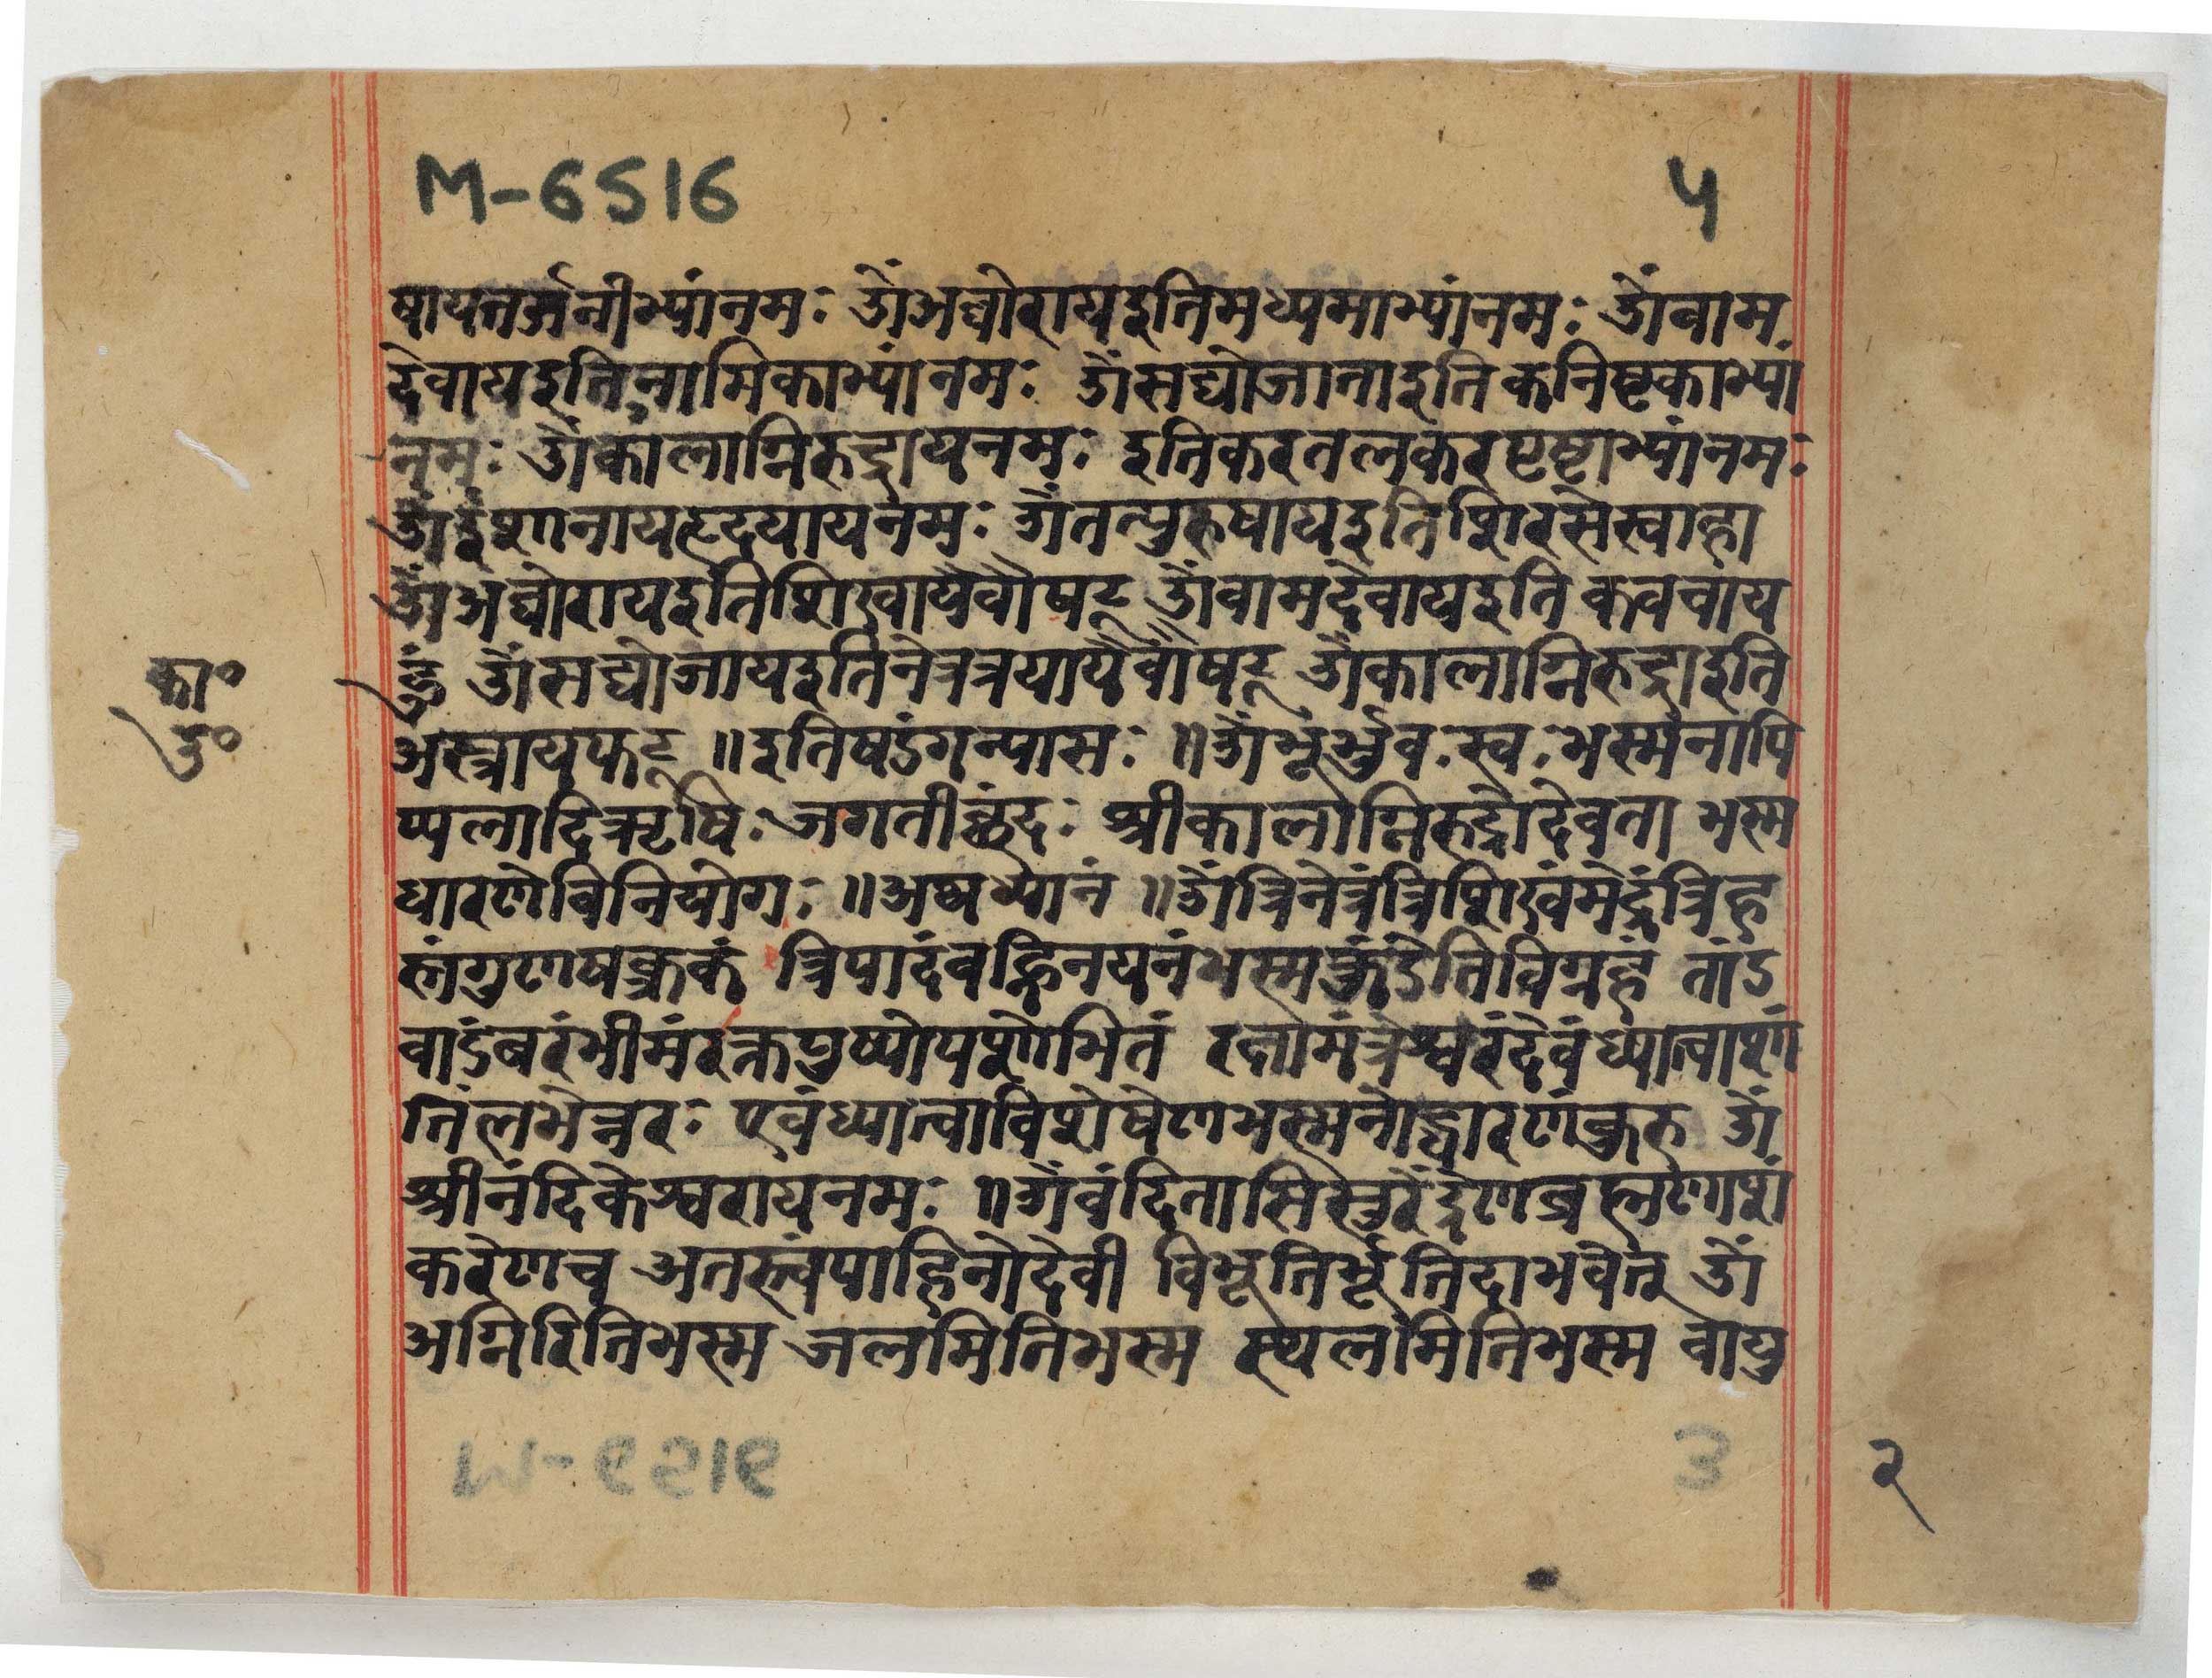 M-6516
५
षायतर्जनीभ्यांनमः ॐअघोरायइतिमध्यमाभ्यांनमः ॐवाम
देवायइतिनामिकाभ्यांनमः ॐसद्योजाताइतिकनिष्टकाभ्यां
नमः ॐकालाग्निरुद्रायनमः इतिकरतलकरपृष्टाभ्यांनमः
ॐईशानायहृदयायनमः ॐतत्पुरुषायइतिशिरसेस्वाहा
ॐअघोरायइतिशिखायैवौषट् ॐवामदेवायइति कवचाय
हुं ॐसद्योजायइतिनेत्रत्रयायैवौषट् ॐकालाग्निरुद्राइति
अस्त्रायफट् ॥इतिषडंगन्यासः ॥ॐभूर्भुवःस्वःभस्मनापि
प्पलादिऋषिः जगतीछंदः श्रीकालाग्निरुद्रोदेवता भस्म
धारणेविनियोगः ॥अथध्यानं ॥ॐत्रिनेत्रंत्रिशिखंमेद्रंत्रिह
स्तंगुणषक्रकं त्रिपादंवह्निनयनंभस्मकुंडेतिविग्रहं तांड
वाडंबरंभीमंरक्तपुष्पोपशोभितं रक्तामंत्रेश्वरंदेवंध्यात्वाशां
तिंलभेन्नरः एवंध्यात्वाविशेषेणभस्मनोद्धारणंकुरु ॐ
श्रीनंदिकेश्वरायनमः ॥ॐवंदितासिसुरेंद्रेणब्रह्मणाशं
करेणच अतस्त्वंपाहिनोदेवी विभूतिर्भूतिदाभवेत् ॐ
अग्निरितिभस्म जलमितिभस्म स्थलमितिभस्म वायु
का॰
उ॰
२